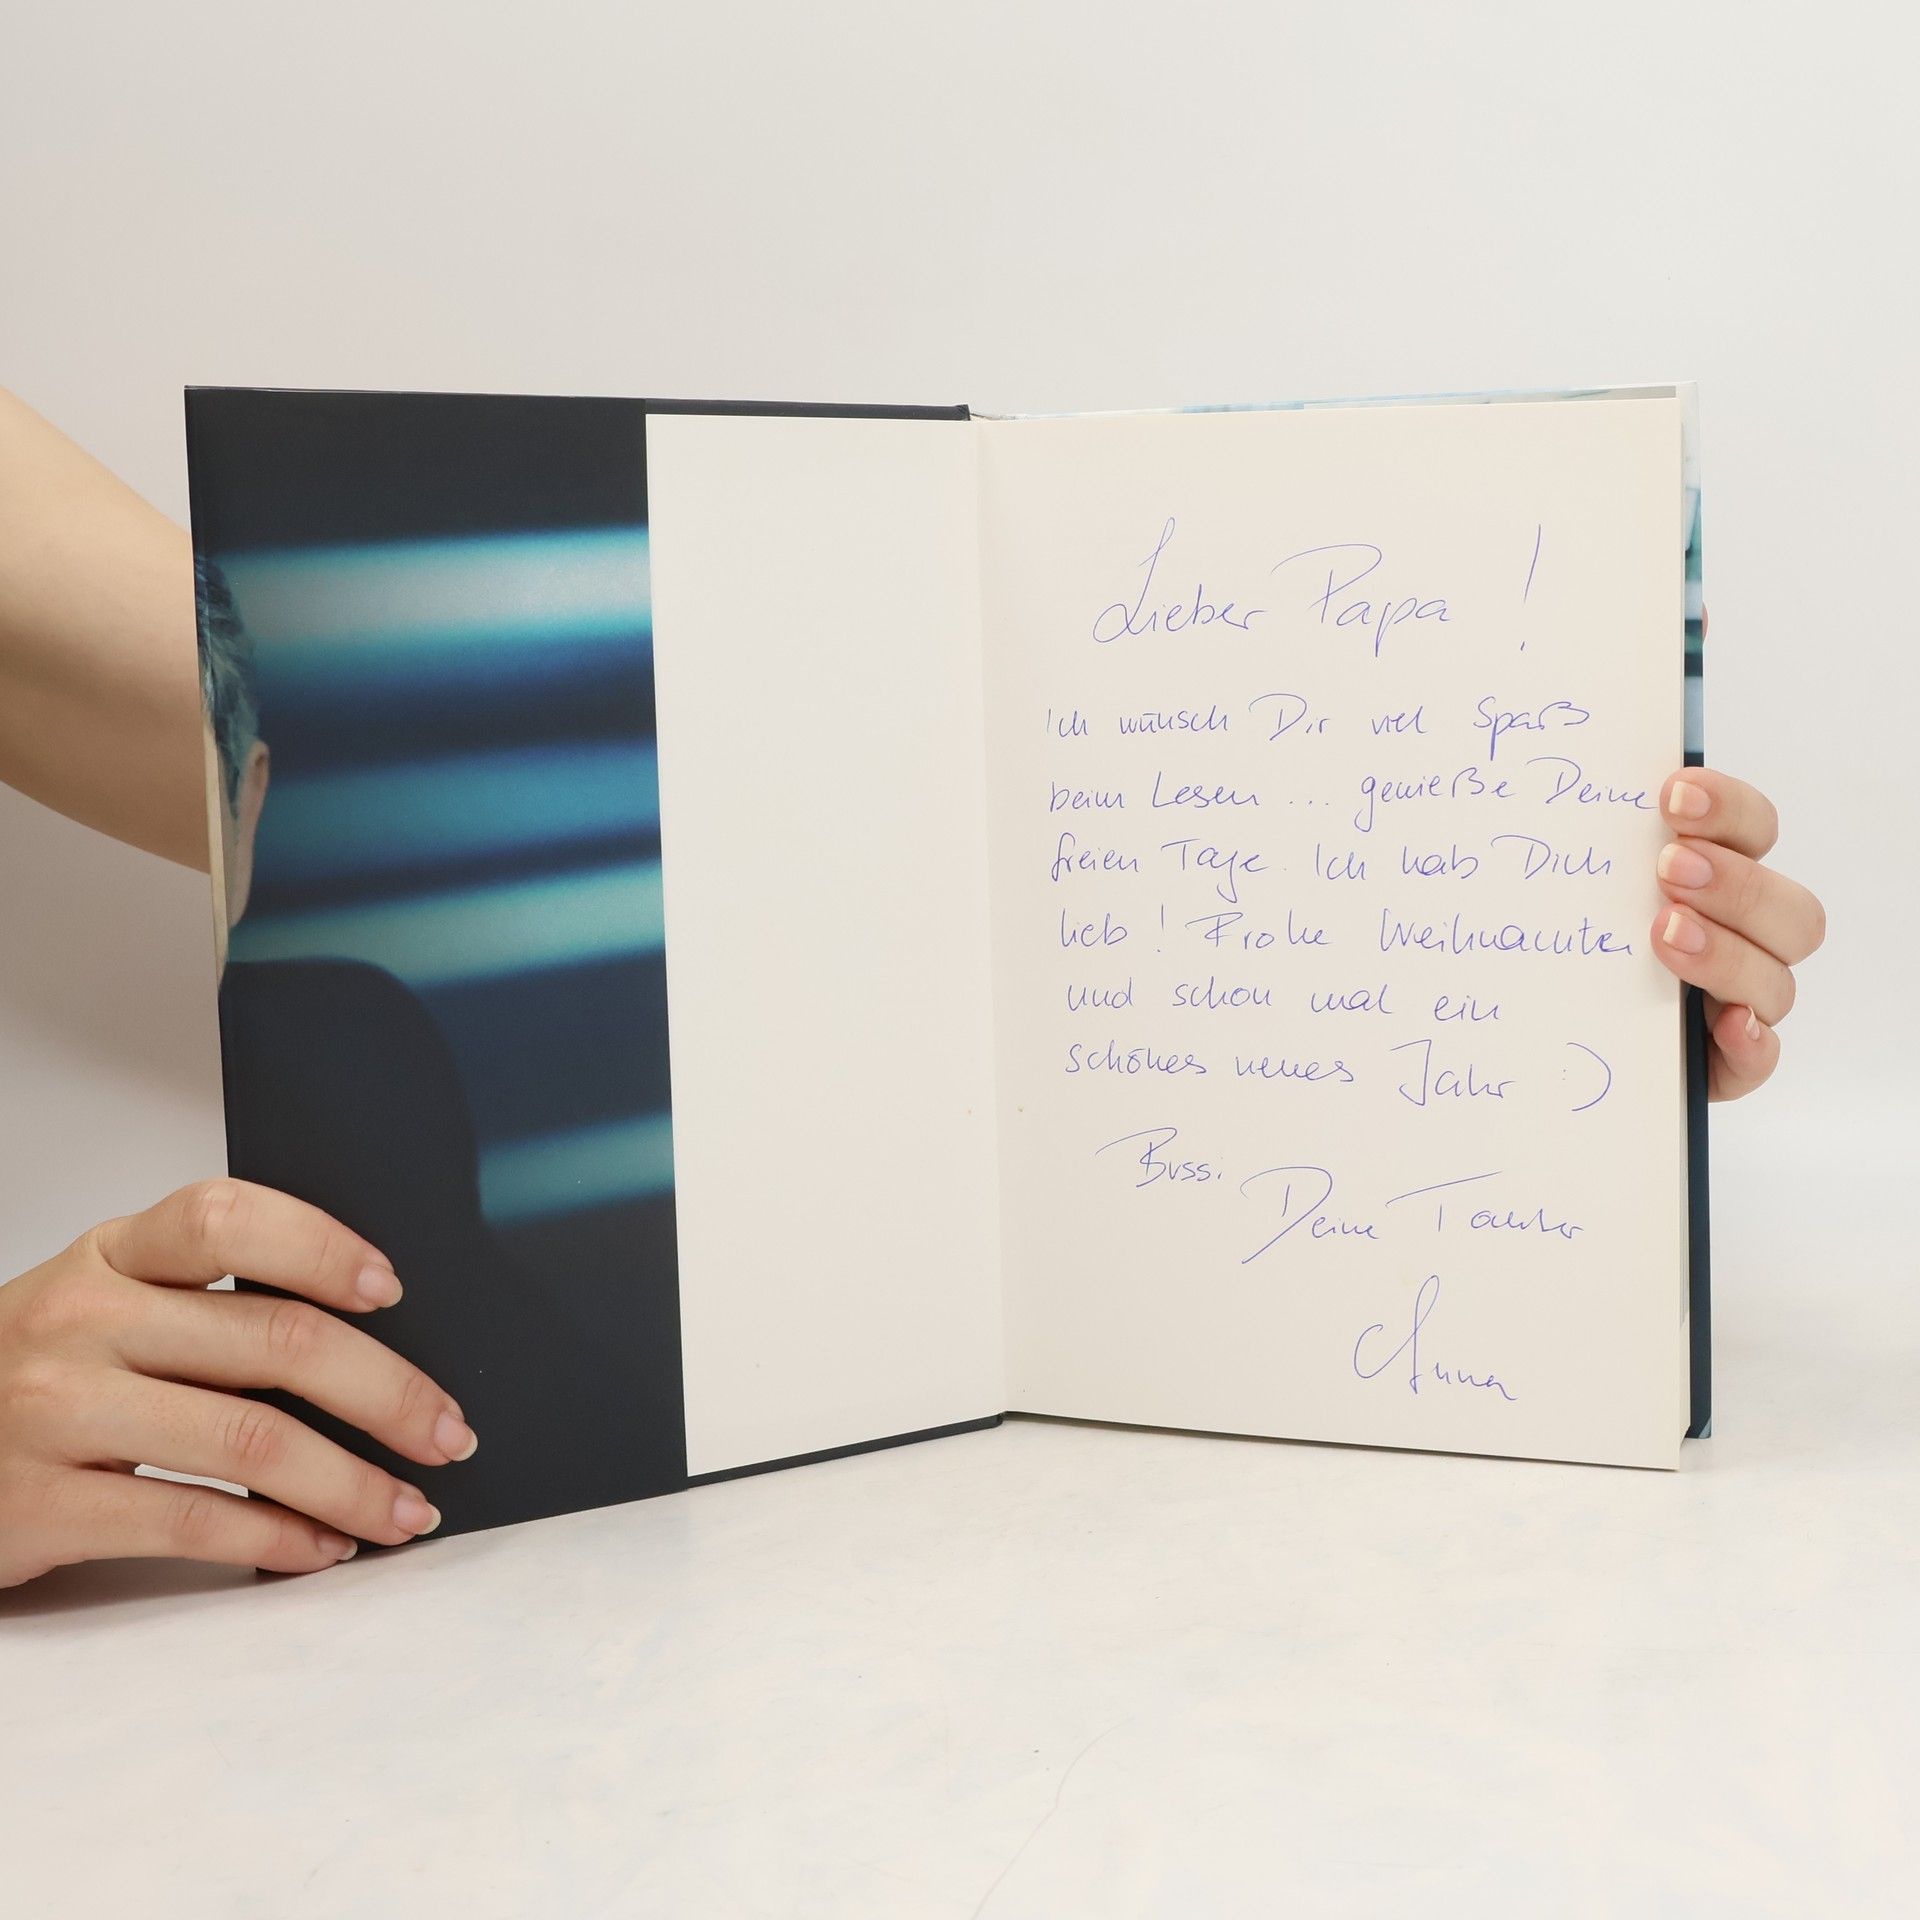 Lieber Papa !
Ich wünsch Dir viel Spaß
beim Lesen ... genieße Deine
freien Tage. Ich hab Dich
lieb ! Frohe Weihnachten
und schon mal ein
schönes neues Jahr :)
Bussi
Deine Tochter
Anna